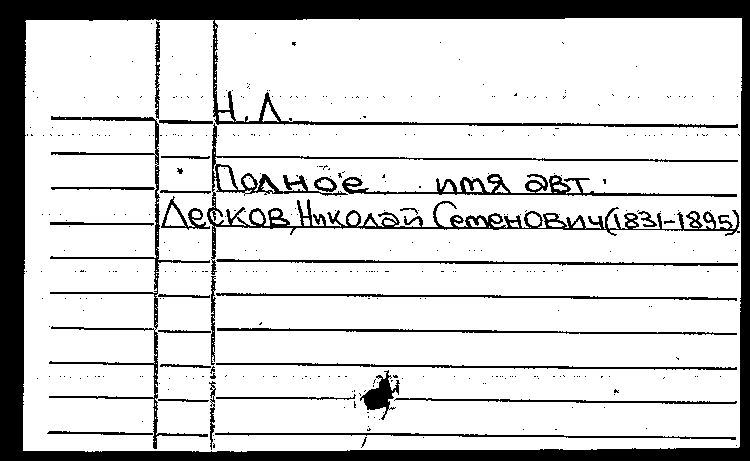 Н.Л.
Полное имя авт.:
Лесков, Николай Семенович (1831-1895)